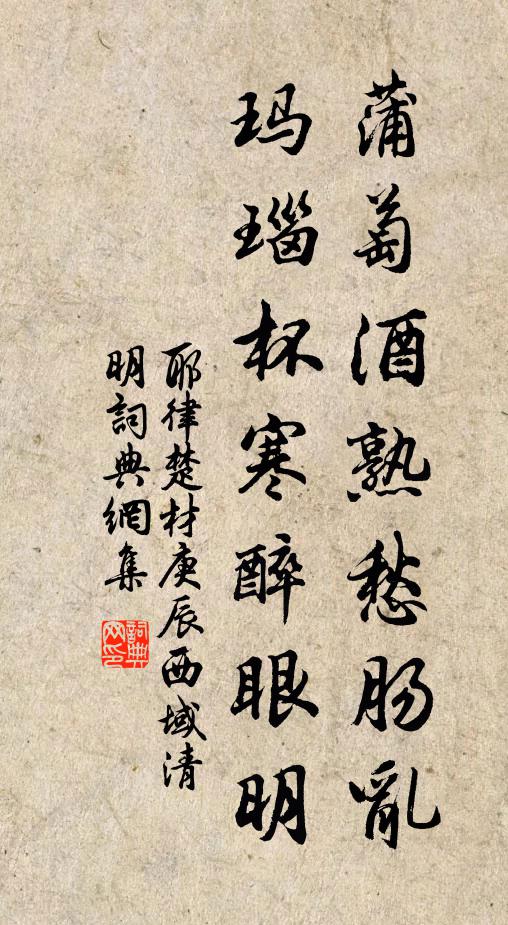 蒲萄酒熟愁肠亂
玛瑙杯寒醉眼明
耶律楚材庚辰西域清
明詞典網集
詞典網印